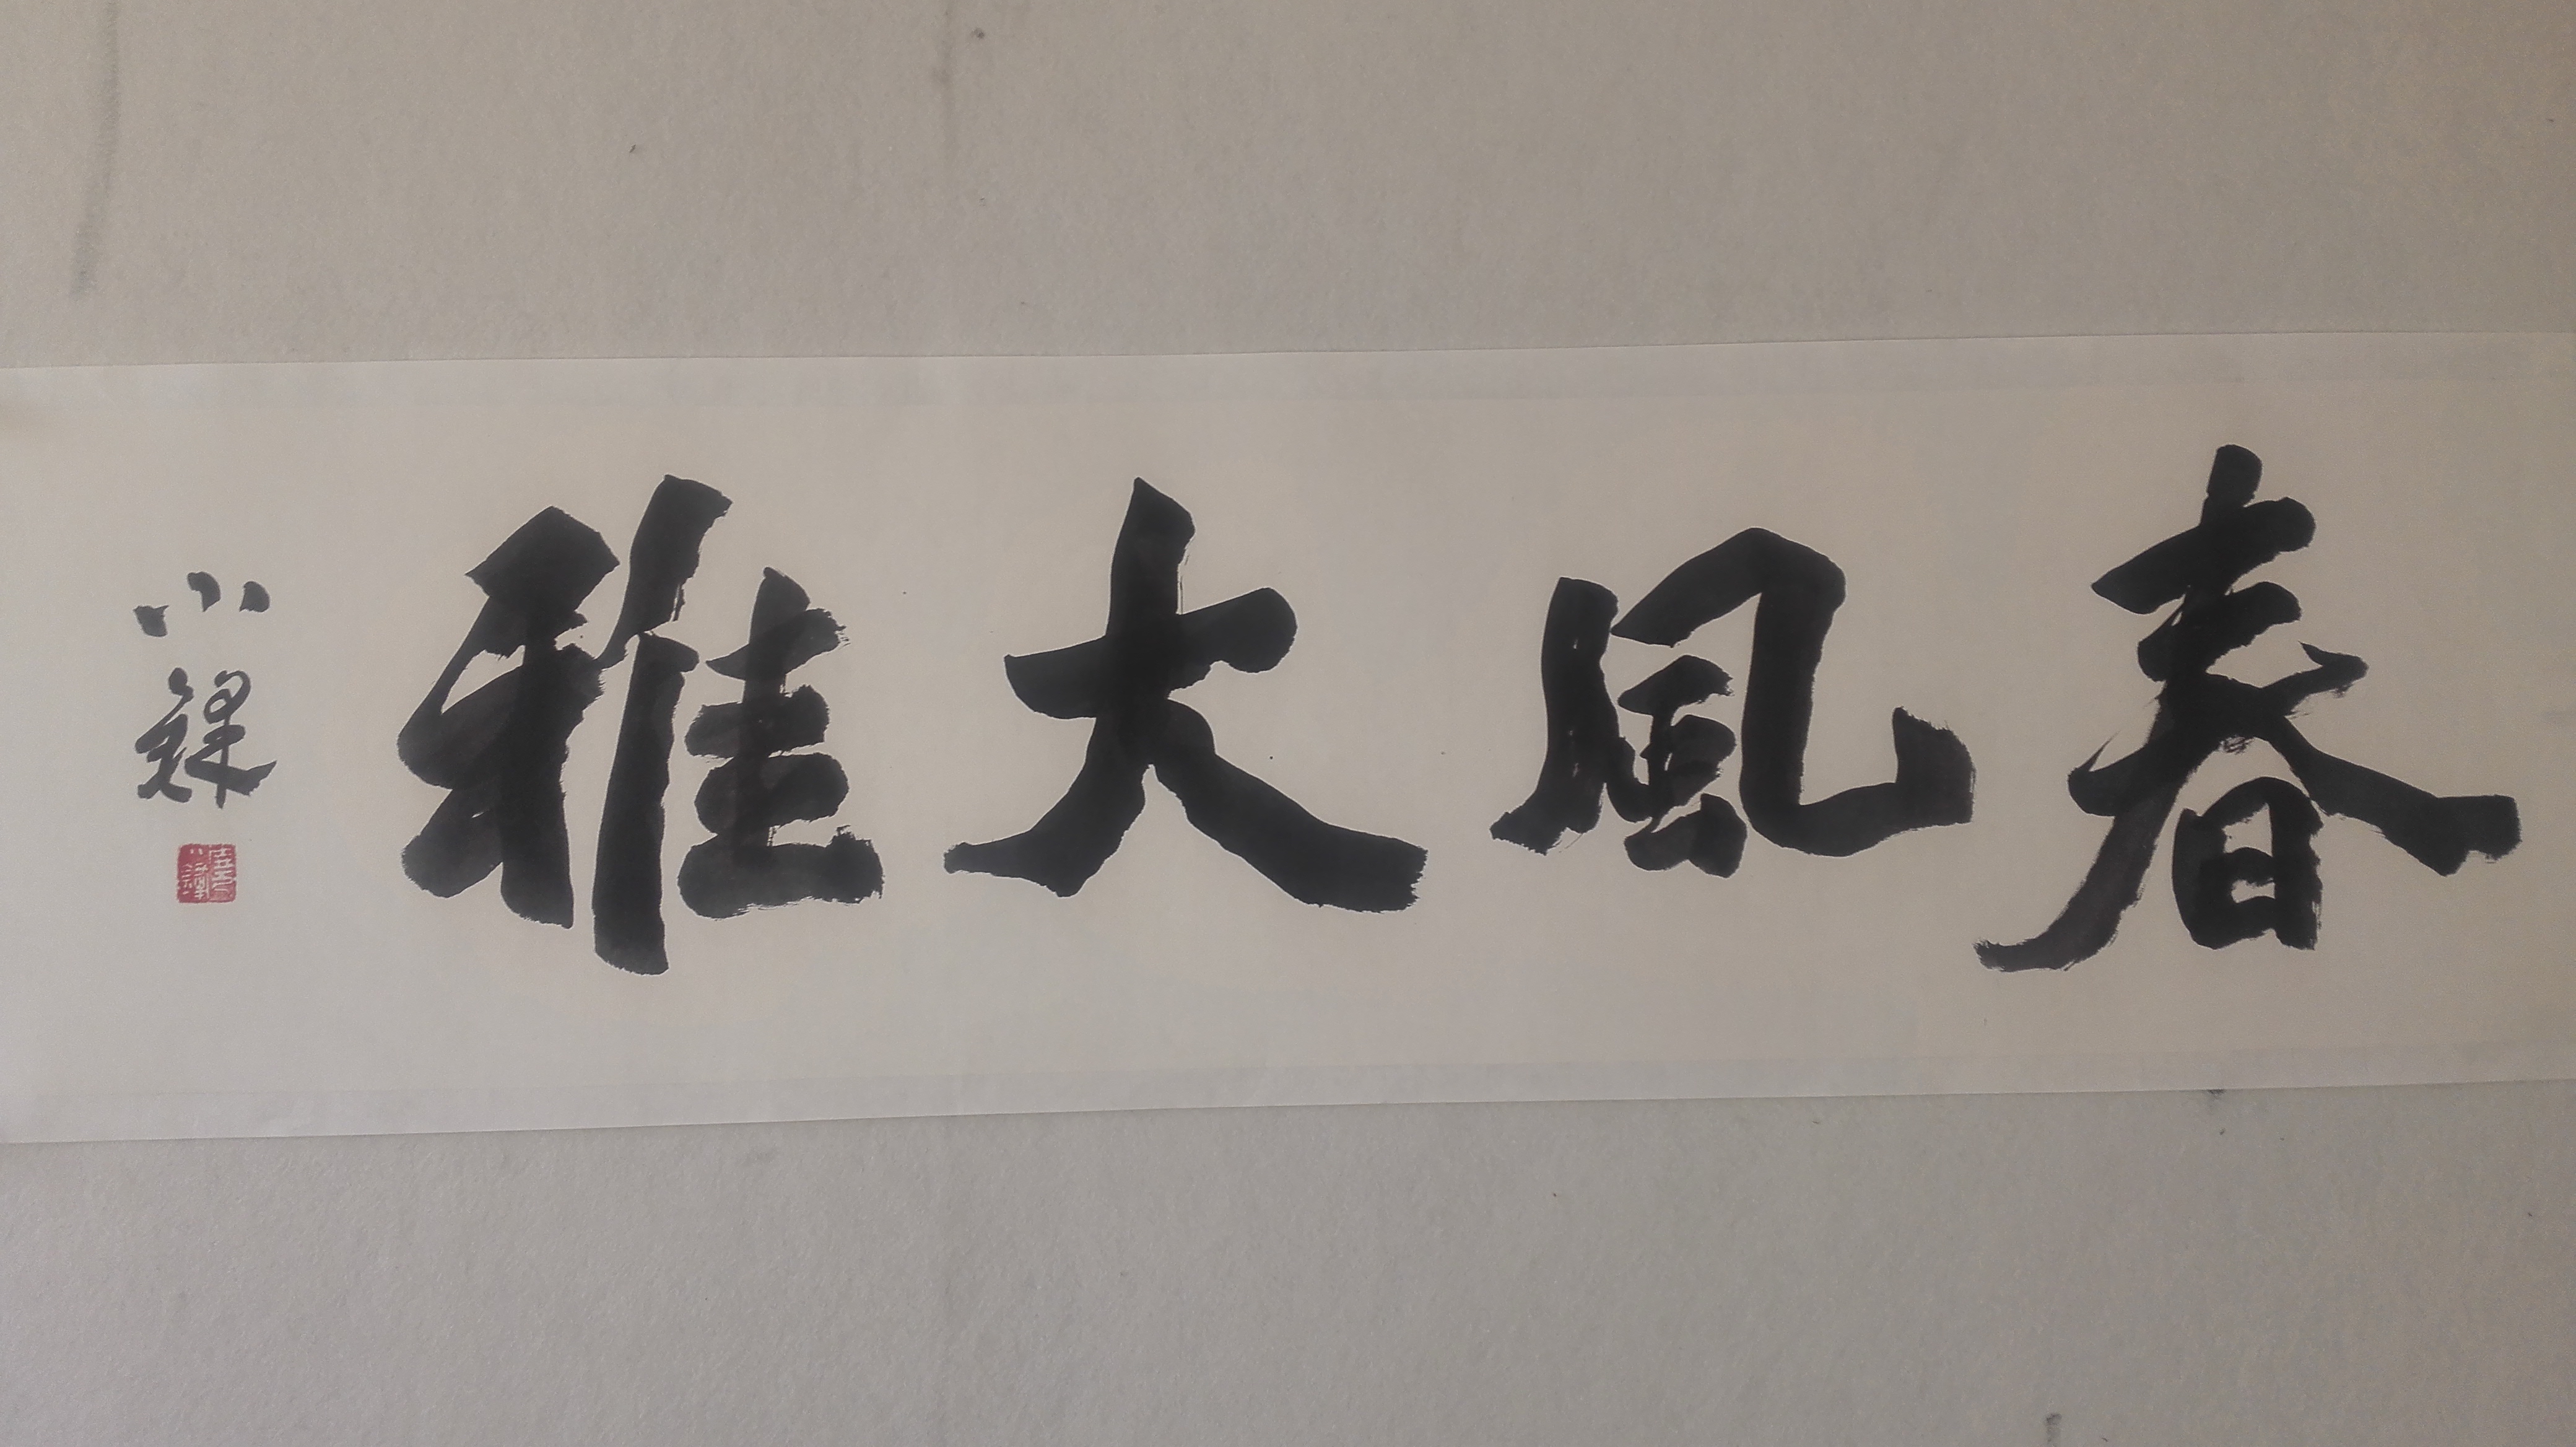 春風大雅
小